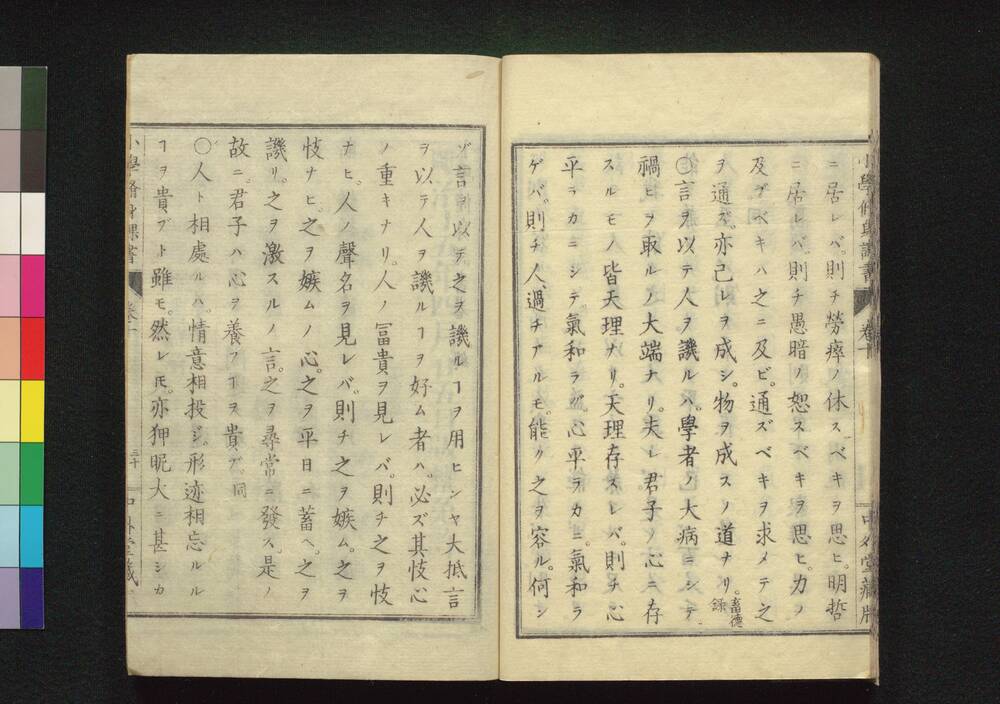 小學脩身課書 卷一 中外堂藏版
ニ居レバ。則チ勞瘁ノ休スベキヲ思ヒ。明哲
ニ居レバ。則チ愚暗ノ恕スベキヲ思ヒ。力ノ
及ブベキハ之ニ及ビ。通ズベキヲ求メテ之
ヲ通ズ。亦己レヲ成シ。物ヲ成スノ道ナリ。畜德錄
〇言ヲ以テ人ヲ譏ルハ。學者ノ大病ニシテ
禍ヒヲ取ルノ大端ナリ。夫レ君子ノ心ニ存
スルモノ皆天理ナリ。天理存スレバ。則チ心
平ラカニシテ。氣和ラグ。心平ラカニ。氣和ラ
ゲバ。則チ人過チアルモ。能ク之ヲ容ル。何シ
ゾ言ヲ以テ。之ヲ譏ルヿヲ用ヒンヤ大抵言
ヲ以テ人ヲ譏ルヿヲ好ム者ハ。必ズ其忮心
ノ重キナリ。人ノ冨貴ヲ見レバ。則チ之ヲ忮
ナヒ。人ノ聲名ヲ見レバ。則チ之ヲ嫉ム。之ヲ
忮ナヒ。之ヲ嫉ムノ心。之ヲ平日ニ蓄ヘ。之ヲ
譏リ。之ヲ激スルノ言。之ヲ尋常ニ發ス。是ノ
故ニ。君子ハ心ヲ養フヿヲ貴ブ。同
〇人ト相處ルハ。情意相投ジ。形迹相忘ルル
ヿヲ貴ブト雖モ。然レ𪜈。亦狎昵大ニ甚シカ
小學脩身課書 卷一 三十 中外堂藏